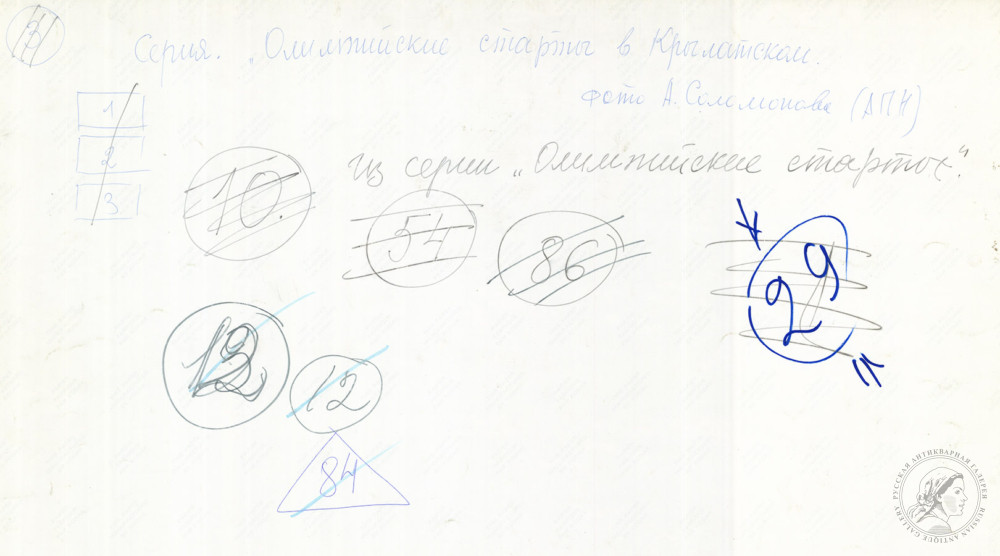 3
Серия. „Олимпийские старты в Крылатском.
фото А. Соломонова (АПН)
1
2
3
Из серии „Олимпийские старты".
10.
54
86
29
12
84
РУССКАЯ АНТИКВАРНАЯ ГАЛЕРЕЯ
RUSSIAN ANTIQUE GALLERY